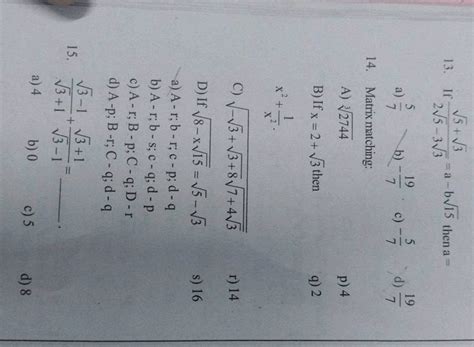 13. If (√5+√3)/(2√5-3√3) = a - b√15 then a =
a) 5/7 b) -19/7 . c) -5/7 d) 19/7
14. Matrix matching:
A) ∛2744 p) 4
B) If x = 2 + √3 then q) 2
x² + 1/x² .
C) √(-√3+√(3+8√(7+4√3))) r) 14
D) If √(8 - x√15) = √5 - √3 s) 16
a) A - r; b - r; c - p; d - q
b) A - r; b - s; c - q; d - p
c) A - r; B - p; C - q; D - r
d) A-p; B - r; C - q; d - q
15. (√3-1)/(√3+1) + (√3+1)/(√3-1) = ____.
a) 4 b) 0 c) 5 d) 8